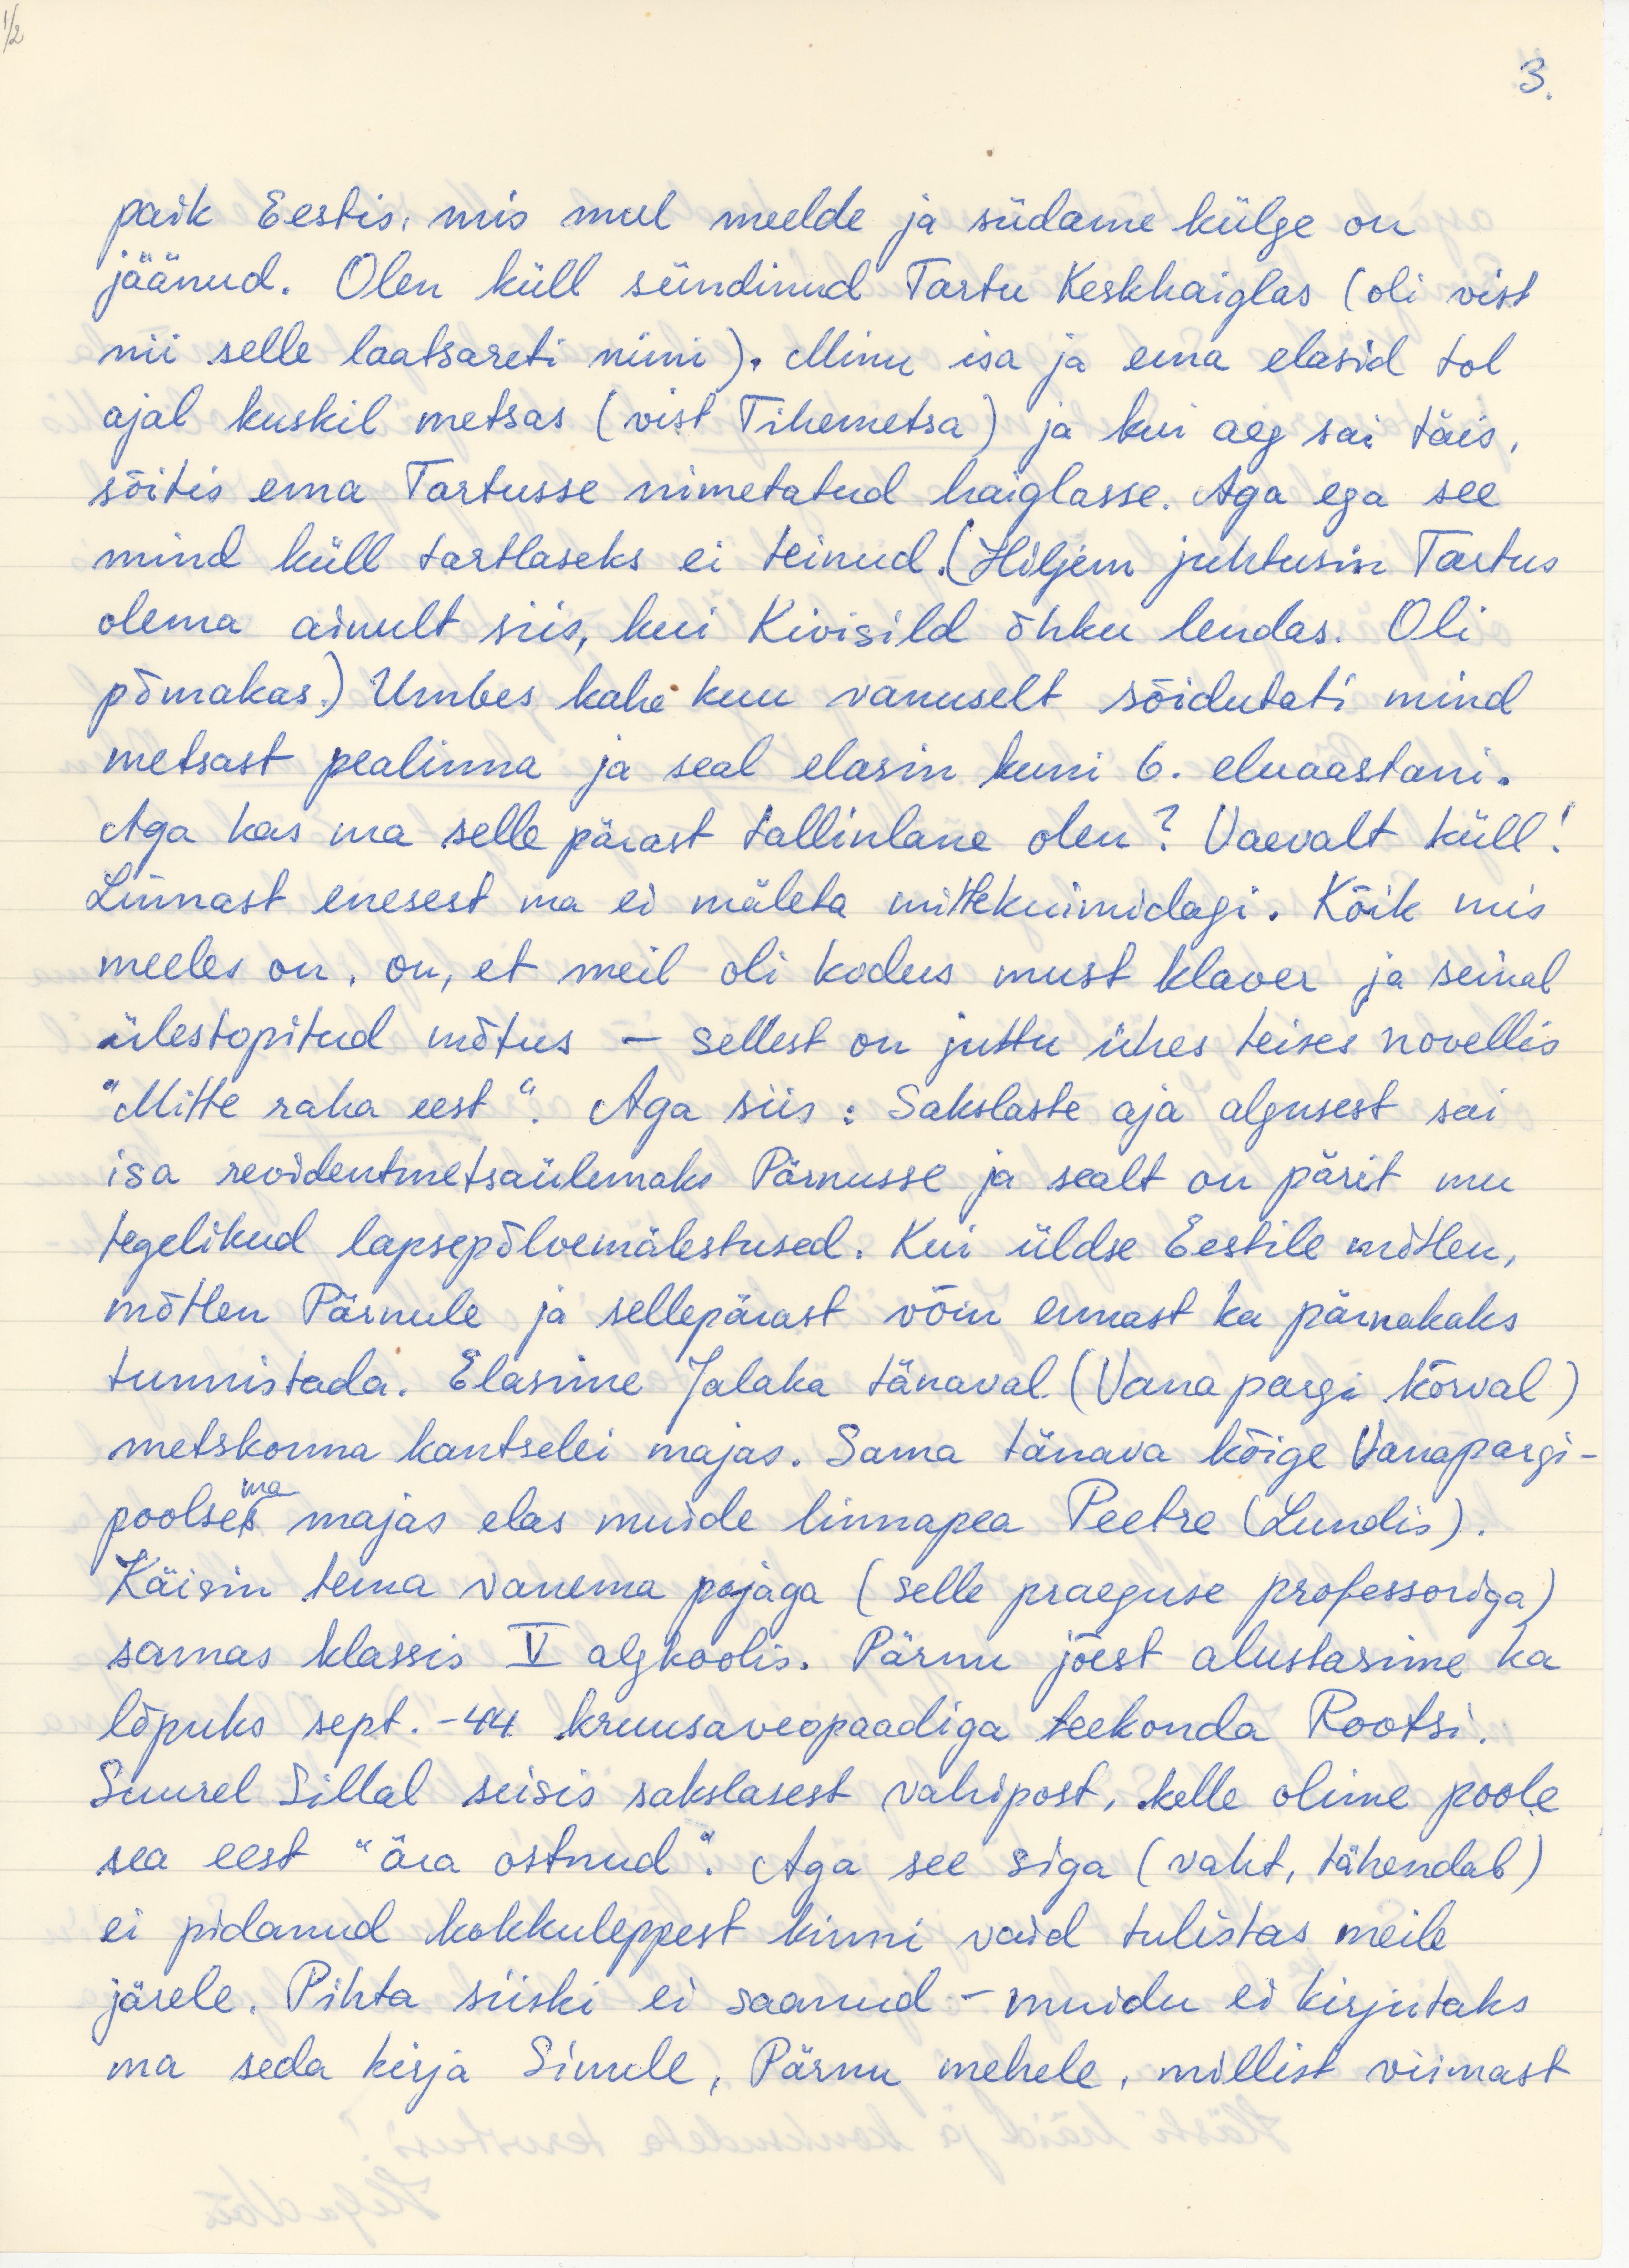 1/2
3.
paik Eestis, mis mul meelde ja südame külge on
jäänud. Olen küll sündinud Tartu Keskhaiglas (oli vist
nii selle laatsareti nimi). Minu isa ja ema elasid tol
ajal kuskil metsas (vist Tihemetsa) ja kui aeg sai täis,
sõitis ema Tartusse nimetatud haiglasse. Aga ega see
mind küll tartlaseks ei teinud. (Hiljem juhtusin Tartus
olema ainult siis, kui Kivisild õhku lendas. Oli
põmakas.) Umbes kahe kuu vanuselt sõidutati mind
metsast pealinna ja seal elasin kuni 6. eluaastani.
Aga kas ma selle pärast tallinlane olen? Vaevalt küll!
Linnast enesest ma ei mäleta mittekuimidagi. Kõik mis
meeles on, on, et meil oli kodus must klaver ja seinal
ülestopitud mõtus – sellest on juttu ühes teises novellis
"Mitte raha eest". Aga siis: Sakslaste aja algusest sai
isa revidentmetsaülemaks Pärnusse ja sealt on pärit mu
tegelikud lapsepõlvemälestused. Kui üldse Eestile mõtlen,
mõtlen Pärnule ja sellepärast võin ennast ka pärnakaks
tunnistada. Elasime Jalaka tänaval (Vana pargi kõrval)
metskonna kantselei majas. Sama tänava kõige Vanapargi-
poolsemas majas elas muide linnapea Peetre (Lundis).
Käisin tema vanema pojaga (selle praeguse professoriga)
samas klassis V algkoolis. Pärnu jõest alustasime ka
lõpuks sept. -44 kruusaveopaadiga teekonda Rootsi.
Suurel Sillal seisis sakslasest vahipost, kelle olime poole
sea eest "ära ostnud". Aga see siga (vaht, tähendab)
ei pidanud kokkuleppest kinni vaid tulistas meile
järele. Pihta siiski ei saanud – muidu ei kirjutaks
ma seda kirja Sinule, Pärnu mehele, millist viimast